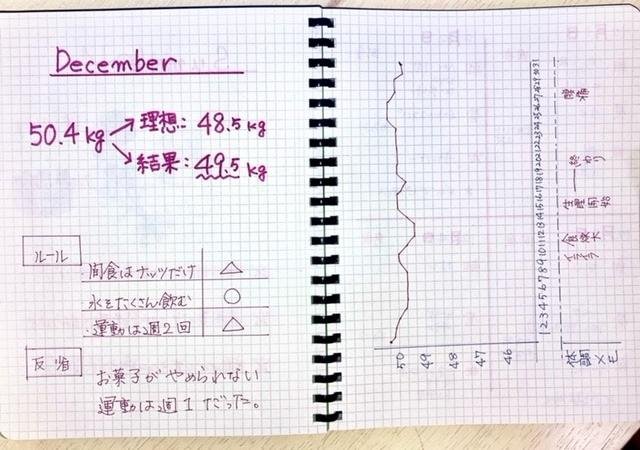 December
50.4kg
理想: 48.5kg
結果: 49.5kg
ルール
・間食はナッツだけ △
水をたくさん飲む ○
・運動は週2回 △
反省
お菓子がやめられない
運動は週1だった。
50 49 48 47 46
1 2 3 4 5 6 7 8 9 10 11 12 13 14 15 16 17 18 19 20 21 22 23 24 25 26 27 28 29 30 31
体調メモ
イライラ
食欲大
生理開始
終わり
腰痛